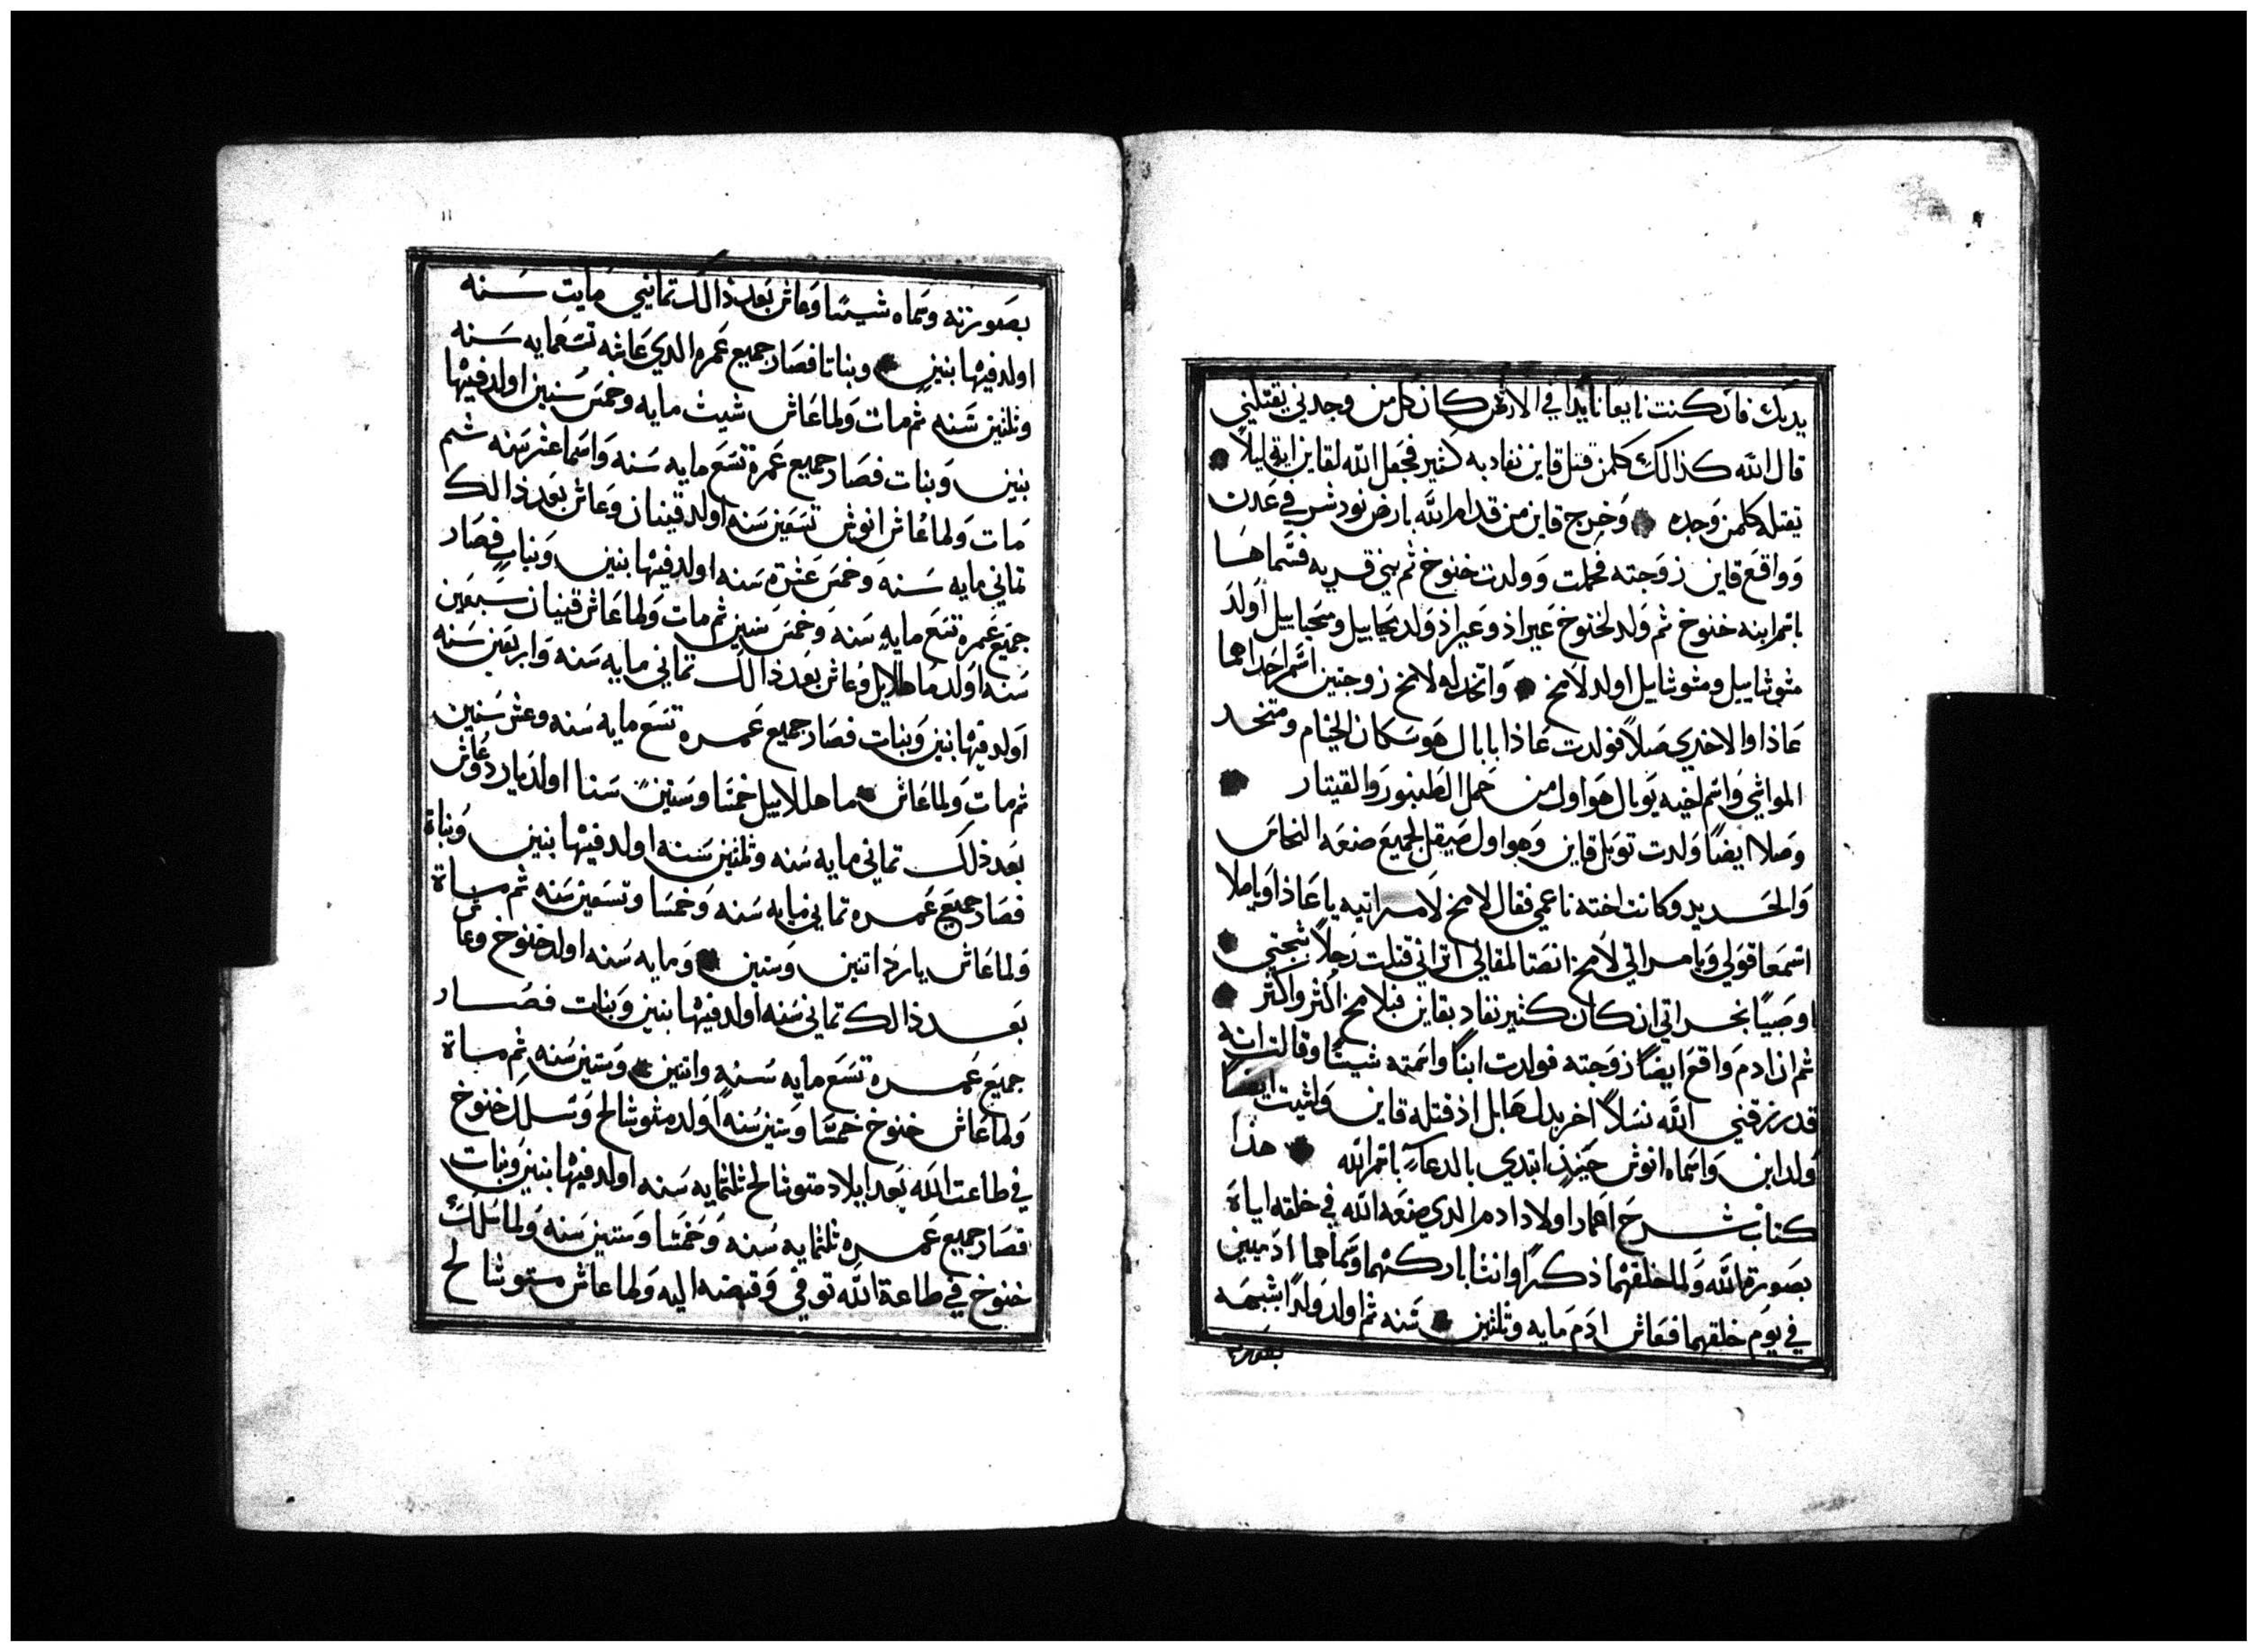 يديك فان كنت نايعا نايدا في الارض كان كل من وجدني يقتلني
قال الله كذالك كلمن قتل قاين نفاد به كثير فجعل الله لقاين اية ليلا
يقتله كلمن وجده وخرج قاين من قدام الله بارض نود شرقي عدن
وواقع قاين زوجته فحملت وولدت خنوخ ثم بني قريه فسماها
باسم ابنه خنوخ ثم ولد لخنوخ عيراد وعيراد ولد محاييل ومحياييل اولد
متوشاييل ومتوشايل اولد لامخ واتخد له لامخ زوجتين اسم احداهما
عاذا والاخري صلا فولدت عاذا بابال هو سكان الخيام ومتخد
المواشي واسم اخيه يوبال هو اول من حمل الطنبور والقيتار
وصلا ايضا ولدت توبل قاين وهو اول صيقل لجميع صنعه النحاس
والحديد وكانت اخته ناعمي فقال لامخ لامراتيه يا عاذا ويا صلا
اسمعا قولي ويا مراتي لامخ انصتا لمقالي اتراني قتلت رجلا بشجتي
او صبيا بجراتي ان كان كثير نفاد بقاين فبلامخ اكثر واكثر
ثم ان ادم واقع ايضا زوجته فولدت ابنا واسمته شيتا وقالت انه
قد رزقني الله نسلا اخر بدل هابل اذ قتله قاين ولشيت ايضا
ولد ابن واسماه انوش حينيذ ابتدي بالدعا باسم الله هذا
كتاب شرح اعمار اولاد ادم الدي صنعه الله في خلقه اياة
بصورة الله ولما خلقهما ذكرا وانثا باركهما وسماهما ادميين
في يوم خلقهما فعاش ادم مايه وثلثين سنه ثم اولد ولدا شبهه
بصورته
١١
بصورته وسماه شيتا وعاش بعد ذالك تماني مايت سنه
اولد فيها بنين وبناتا فصار جميع عمره الدي عاشه تسعمايه سنه
وثلثين سنه ثم مات ولما عاش شيث مايه وخمس سنين اولد فيها
بنين وبنات فصار جميع عمرة تسع مايه سنه واسما عشر سنه ثم
مات ولما عاش انوش تسعين سنه اولد قينان وعاش بعد ذالك
تماني مايه سنه وخمس عشرة سنه اولد فيها بنين وبنات فصار
جميع عمرة تسع مايه سنه وخمس سنين ثم مات ولما عاش قينان سبعين
سنه اولد ماهللايل وعاش بعد ذالك تماني مايه سنه واربعين سنه
اولد فيها بنين وبنات فصار جميع عمره تسع مايه سنه وعشر سنين
ثم مات ولما عاش ماهللاييل خمسا وستين سنا اولد يارد وعاش
بعد ذلك تماني مايه سنه وثلثين سنه اولد فيها بنين وبناة
فصار جميع عمره تماني مايه سنه وخمسا وتسعين سنه ثم ماة
ولما عاش يارد اتنين وستين ومايه سنه اولد خنوخ وعاش
بعد ذالك تماني سنه اولد فيها بنين وبنات فصار
جميع عمره تسع مايه سنه واتنين وستين سنه ثم ماة
ولما عاش خنوخ خمسا وستين سنه اولد متوشالح وسلك خنوخ
في طاعت الله بعد ايلاد متوشالح ثلثمايه سنه اولد فيها بنين وبنات
فصار جميع عمره ثلثمايه سنه وخمسا وستين سنه ولما سلك
خنوخ في طاعة الله توفي وقبضه اليه ولما عاش متوشالح